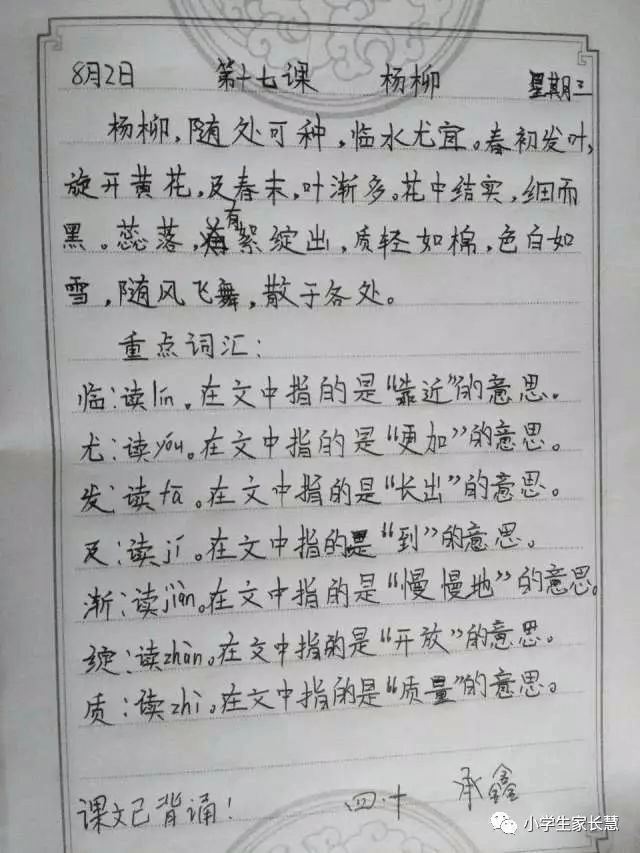 8月2日 第十七课 杨柳 星期三
杨柳,随处可种,临水尤宜。春初发叶,
旋开黄花,及春末,叶渐多。花中结实,细而
黑。蕊落,有絮绽出,质轻如棉,色白如
雪,随风飞舞,散于各处。
重点词汇:
临:读lín。在文中指的是“靠近”的意思。
尤:读yóu。在文中指的是“更加”的意思。
发:读fā。在文中指的是“长出”的意思。
及:读jí。在文中指的是“到”的意思。
渐:读jiàn。在文中指的是“慢慢地”的意思。
绽:读zhàn。在文中指的是“开放”的意思。
质:读zhì。在文中指的是“质量”的意思。
课文已背诵! 四.十 承鑫
小学生家长慧